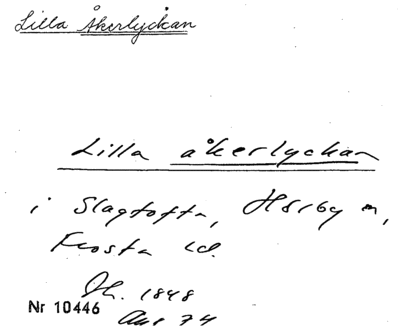 Lilla Åkerlyckan
Lilla åkerlyckan
i Slagtofta, Hörby sn,
Frosta hd.
Dh. 1848
Nr 10446
Aur 74